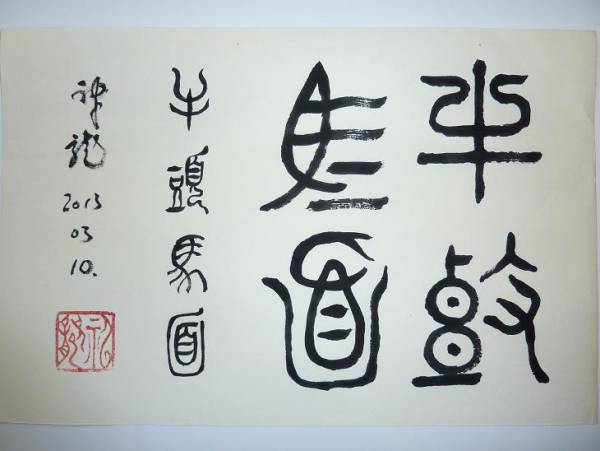 牛頭
馬面
牛頭馬面
神龍
2013
03
10.